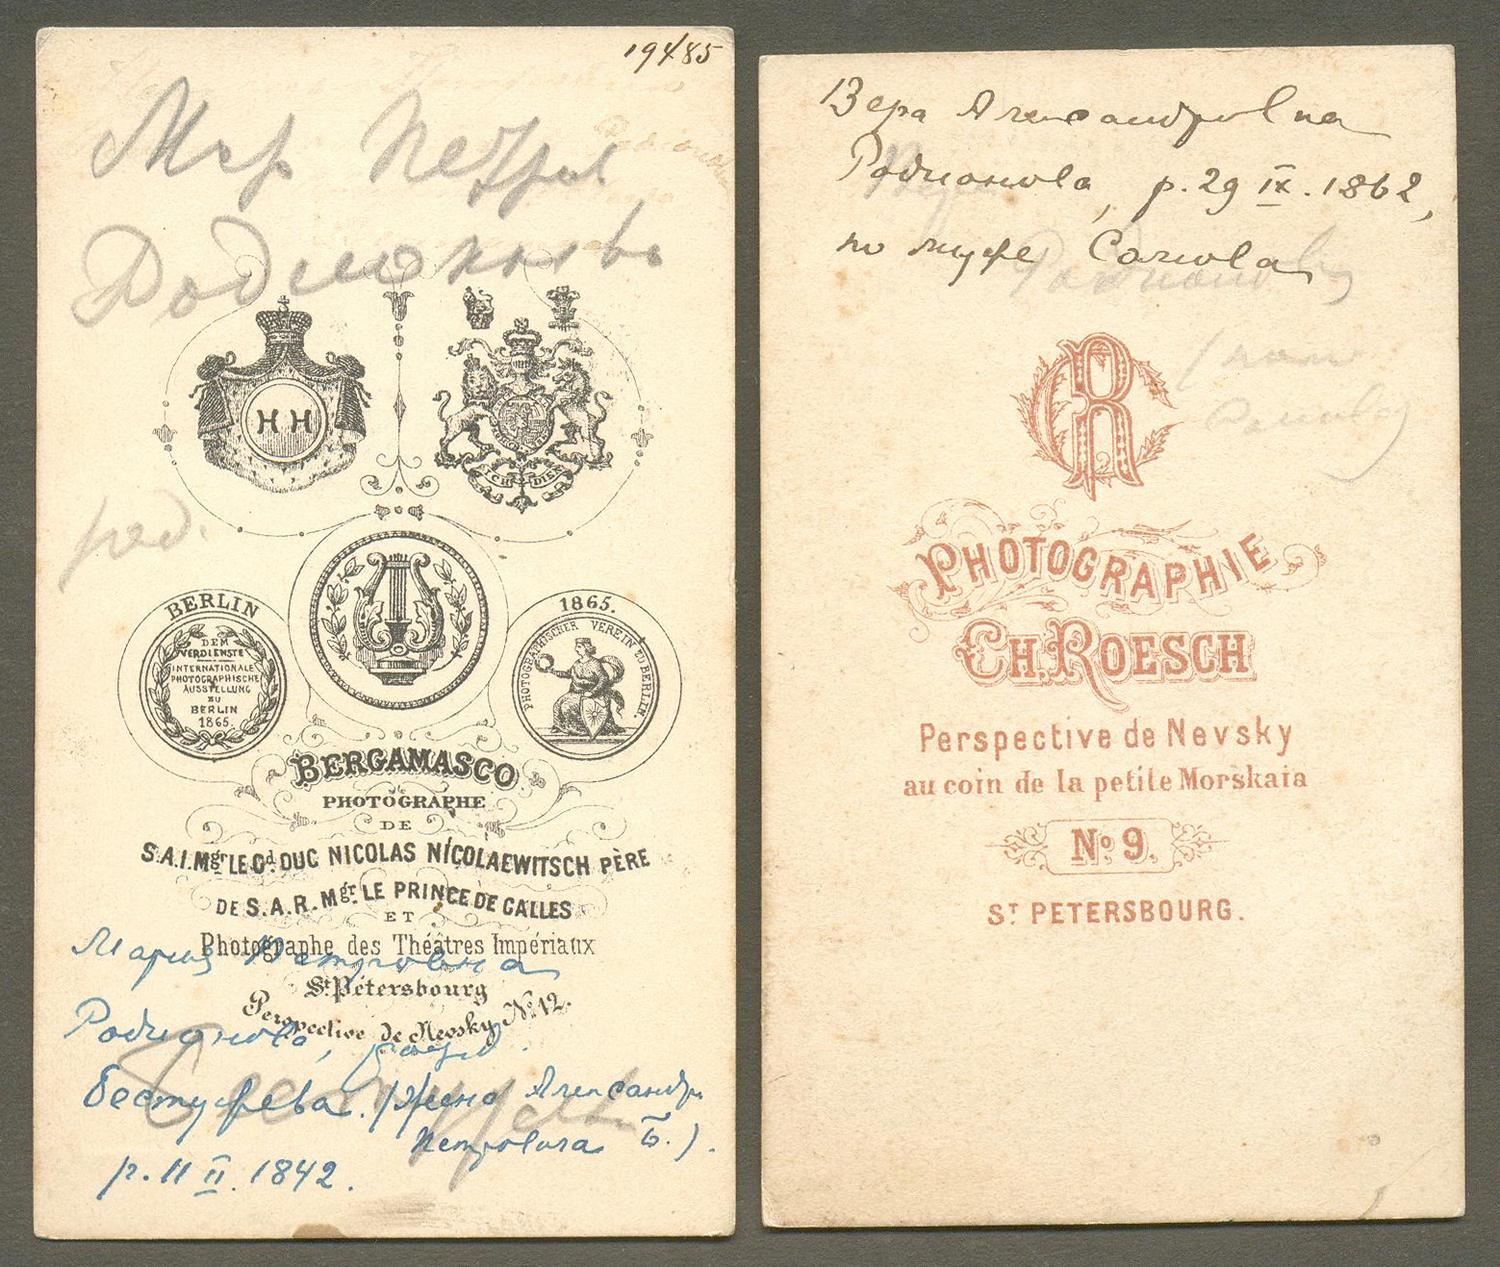 19485
Мар Петров
Родионова
H H
ICH DIEN
род.
BERLIN
DEM
VERDIENSTE
INTERNATIONALE
PHOTOGRAPHISCHE
AUSSTELLUNG
ZU
BERLIN
1865.
1865.
PHOTOGRAPHISCHER VEREIN ZU BERLIN.
BERGAMASCO
PHOTOGRAPHE
DE
S.A.I. Mgr LE Gd. DUC NICOLAS NICOLAEWITSCH PÈRE
DE S.A.R. Mgr LE PRINCE DE GALLES
ET
Photographe des Théâtres Impériaux
St Pétersbourg
Perspective de Nevsky No 12.
Мария Петровна
Родионова, рожд.
Бестужева. (Жена Александра
Петровича Б.).
р. 11 II. 1842.
Вера Александровна
Родионова, р. 29 IX. 1862,
по муже Сомова
Родионова
CR
PHOTOGRAPHIE
CH. ROESCH
Perspective de Nevsky
au coin de la petite Morskaia
No 9.
ST PETERSBOURG.